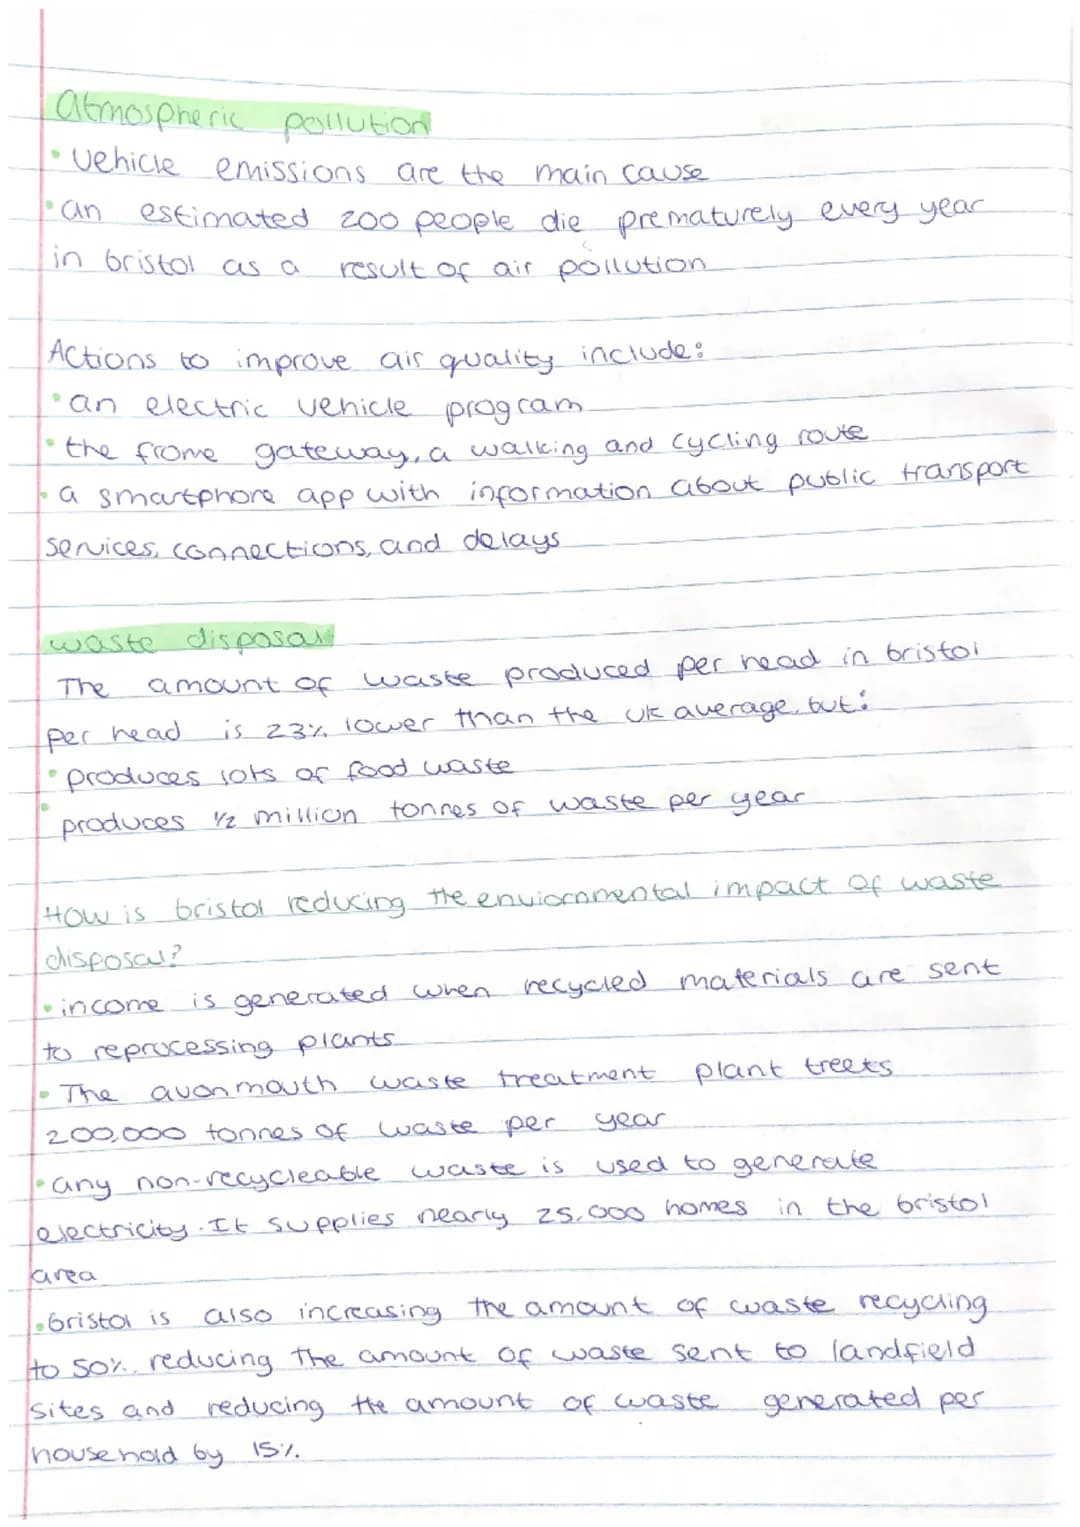 atmospheric pollution
• vehicle emissions are the main cause
• an estimated 200 people die prematurely every year
in bristol as a result of air pollution
Actions to improve air quality include:
• an electric vehicle program
• the frome gateway, a walking and cycling route
• a smartphone app with information about public transport
services, connections, and delays
waste disposal
The amount of waste produced per head in bristol
per head is 23% lower than the uk average, but:
• produces lots of food waste
• produces 1/2 million tonnes of waste per year
How is bristol reducing the enviornmental impact of waste
disposal?
• income is generated when recycled materials are sent
to reprocessing plants
• The avonmouth waste treatment plant treets
200,000 tonnes of waste per year
• any non-recycleable waste is used to generate
electricity. It supplies nearly 25,000 homes in the bristol
area
• bristol is also increasing the amount of waste recycling
to 50%, reducing the amount of waste sent to landfield
sites and reducing the amount of waste generated per
household by 15%.